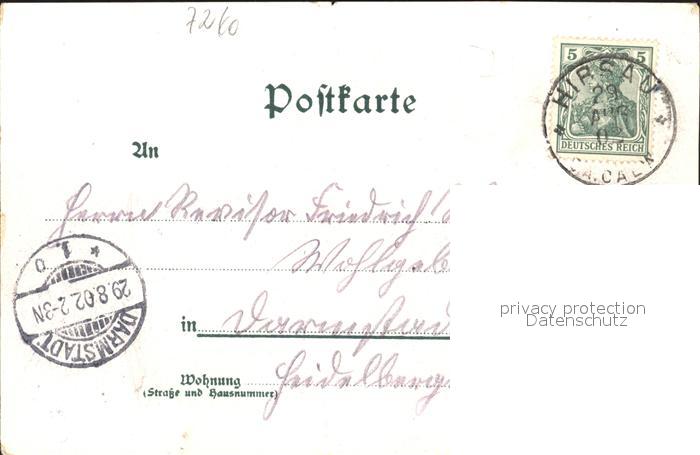 7260
Postkarte
5 5
DEUTSCHES REICH
HIRSAU
29
AUG
02
OA. CALW
An
Herrn Revisor Friedrich
Wohlgeb
* 1. o
29.8.02.2-3N
DARMSTADT
in Darmstadt
Wohnung Heidelberg
(Straße und Hausnummer)
privacy protection
Datenschutz